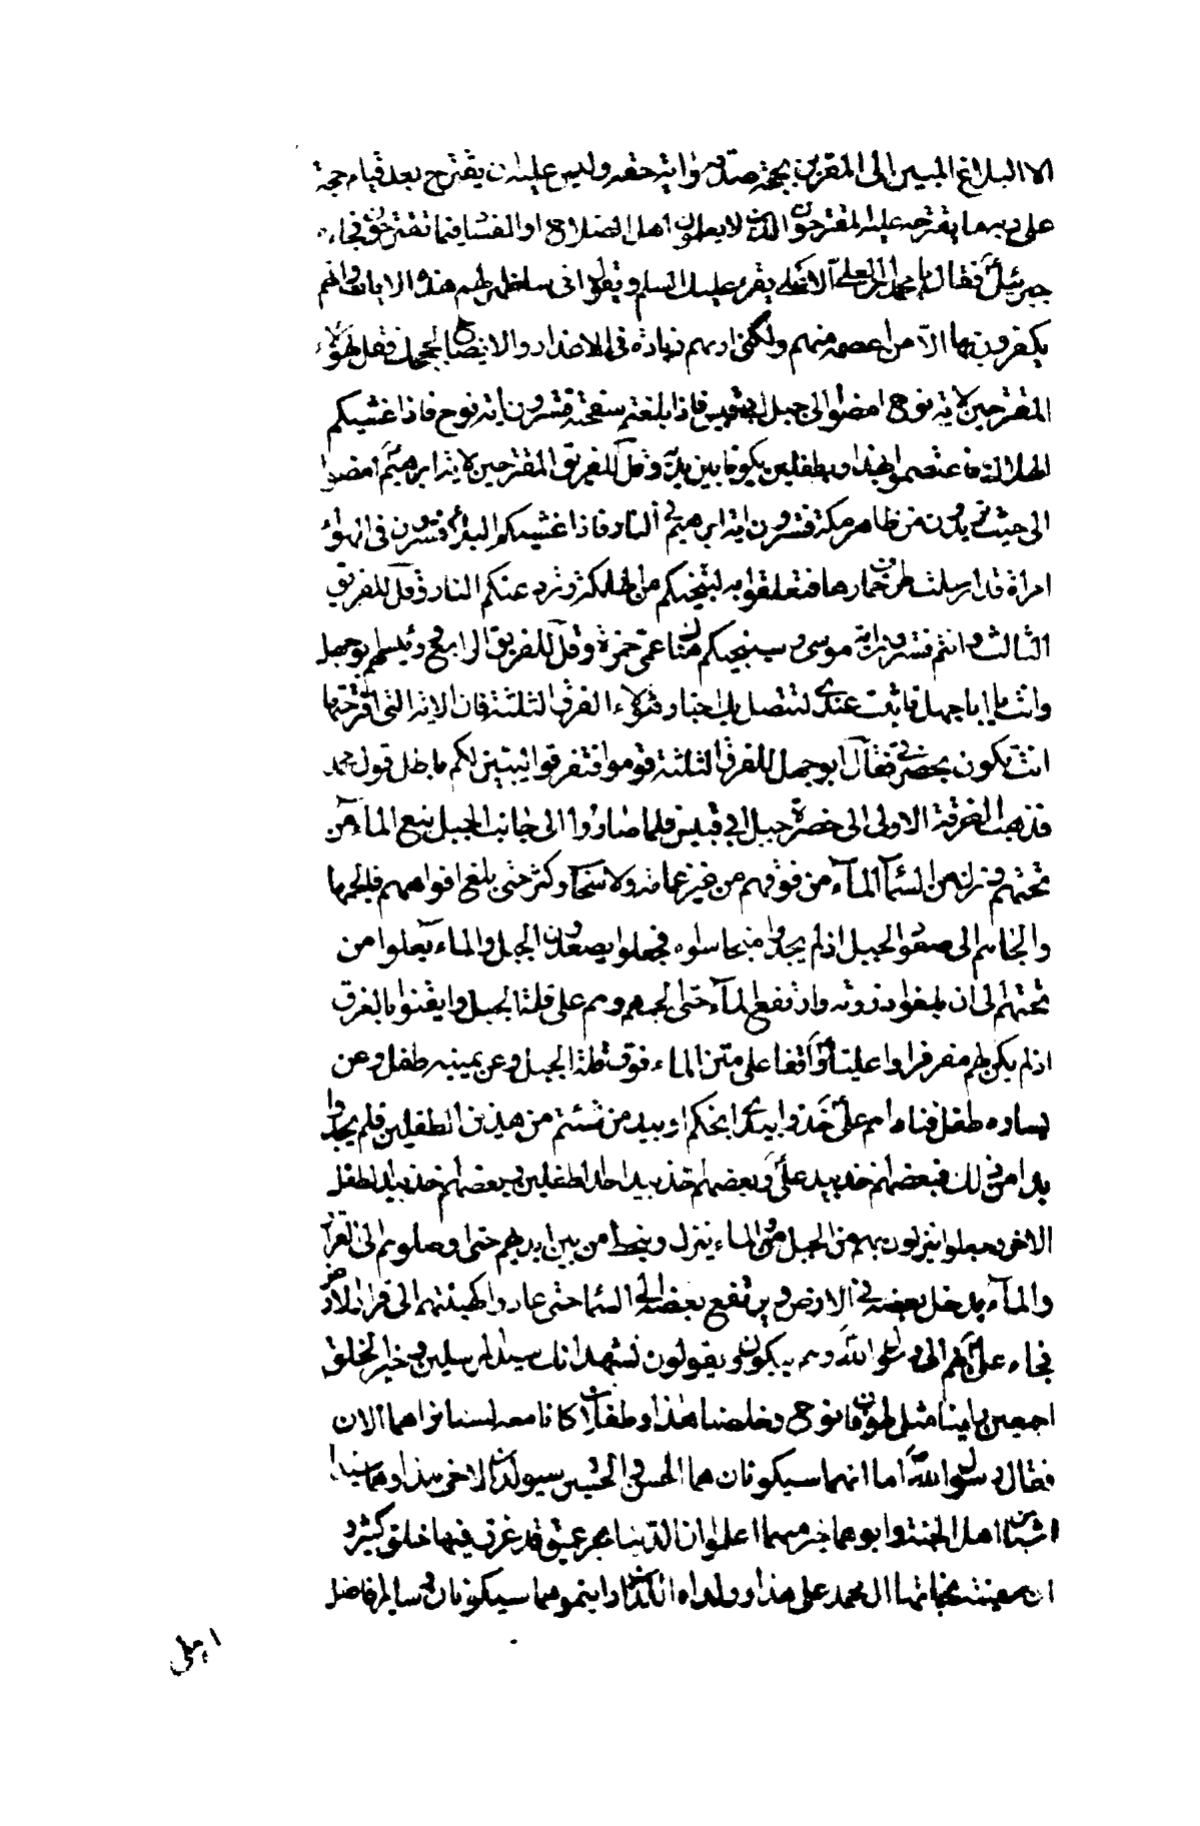 الا البلاغ المبين الى المقرين بحجة صدقه واية حقه وليس عليه ان يقترح بعد قيام حجة
على ربه ما يقترحه عليه المقترحون الذين لا يعلمون اهل الصلاح او الفساد فيما تقترحون فجاءه
جبرئيل فقال يا محمد ان العلي الاعلى يقرء عليك السلم ويقول انى ساظهر لهم هذه الايات وانهم
يكفرون بها الا من اعصمه منهم ولكنى اريهم زيادة فى الاعذار والايضاح لحججك فقل لهؤلاء
المقترحين لاية نوح امضوا الى جبل ابى قبيس فاذا بلغتم سفحه فسترون اية نوح فاذا غشيكم
الهلاك فاعتصموا بهذا وبطفلين يكونا بين يديه وقل للفريق المقترحين لاية ابرهيم امضوا
الى حيث تريدون من ظاهر مكة فسترون اية ابرهيم فى النار فاذا غشيكم البلاء فسترون فى الهواء
امراة قد ارسلت طرف خمارها فتعلقوا به لتنجيكم من الهلكة وترد عنكم النار وقل للفريق
الثالث وانتم فسترون اية موسى وسينجيكم هناك عمى حمزة وقل للفريق الرابع ورئيسهم ابو جهل
وانت يا ابا جهل فاثبت عندى لتتصل بك اخبار هؤلاء الفرق الثلثة فان الاية التى اقترحتها
انت تكون بحضرتى فقال ابو جهل للفرق الثلثة قوموا فتفرقوا ليتبين لكم باطل قول محمد
فذهبت الفرقة الاولى الى حضرة جبل ابى قبيس فلما صاروا الى جانب الجبل نبع الماء من
تحتهم ونزل من السماء الماء من فوقهم من غير غمامة ولا سحاب وكثر حتى بلغ افواههم فالجمها
والجاهم الى صعود الجبل اذ لم يجدوا منجا سواه فجعلوا يصعدون الجبل والماء يعلوا من
تحتهم الى ان بلغوا ذروته وارتفع الماء حتى الجمهم وهم على قلة الجبل وايقنوا بالغرق
اذ لم يكن لهم مفر فراوا عليا واقفا على متن الماء فوق قلة الجبل وعن يمينه طفل وعن
يساره طفل فناداهم على خذوا بيدى انجكم او بيد من شئتم من هذين الطفلين فلم يجدوا
بدا من ذلك فبعضهم اخذ بيد على وبعضهم اخذ بيد احد الطفلين وبعضهم اخذ بيد الطفل
الاخر وجعلوا ينزلون بهم من الجبل والماء ينزل وينحط من بين ايديهم حتى اوصلوهم الى القرار
والماء يدخل بعضه فى الارض ويرتفع بعضه الى السماء حتى عادوا كهيئتهم الى قرار الارض
فجاء على بهم الى رسول الله وهم يبكون ويقولون نشهد انك سيد المرسلين وخير الخلق
اجمعين راينا مثل طوفان نوح وخلصنا هذا وطفلان كانا معه لسنا نراهما الان
فقال رسول الله اما انهما سيكونان هما الحسن والحسين سيولدان لاخى هذا وهما سيدا
شباب اهل الجنة وابوهما خير منهما اعلموا ان الدنيا بحر عميق قد غرق فيها خلق كثير و
ان سفينة نجاتها ال محمد على هذا وولداه اللذان رايتموهما سيكونان وساير افاضل
اهلى